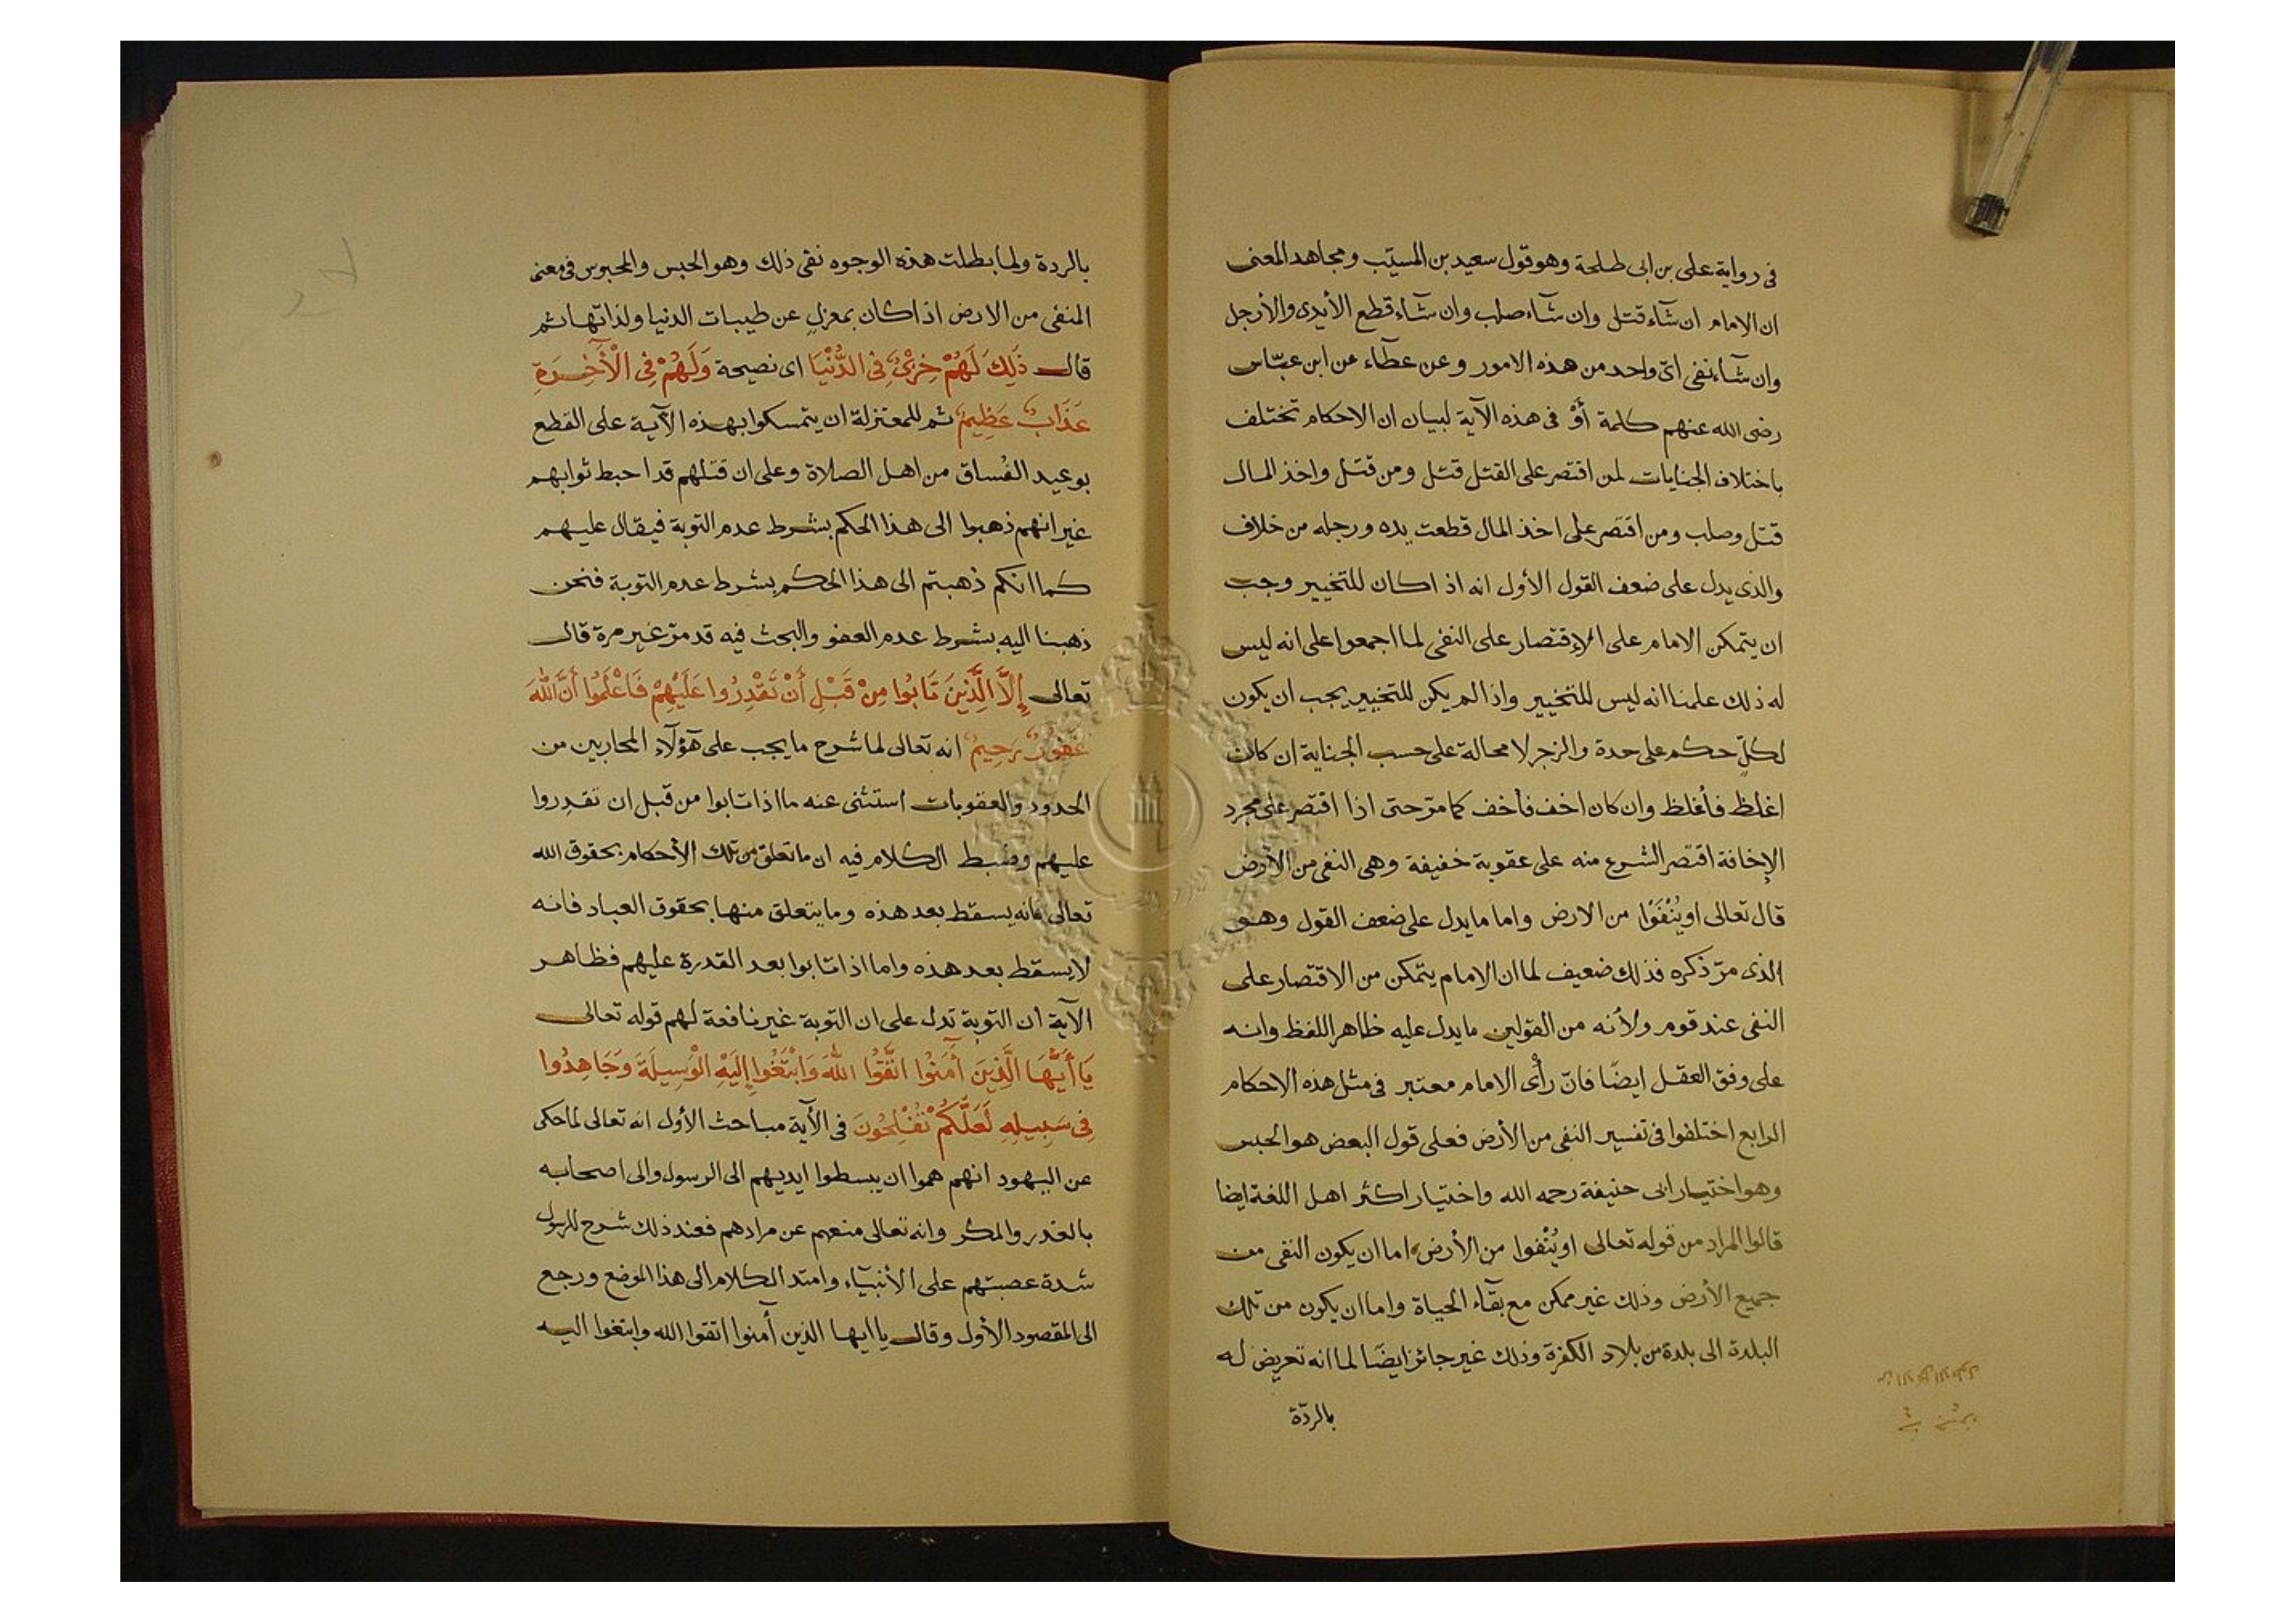 فى رواية على بن ابى طلحة وهو قول سعيد بن المسيّب ومجاهد المعنى
ان الامام ان شآء قتل وان شآء صلب وان شآء قطع الأيدى والأرجل
وان شآء نفى اىّ واحد من هذه الامور وعن عطآء عن ابن عبّاس
رضى الله عنهم كلمة أَوْ فى هذه الآية لبيان ان الاحكام تختلف
باختلاف الجنايات لمن اقتصر على القتل قتل ومن قتل واخذ المال
قتل وصلب ومن اقتصر على اخذ المال قطعت يده ورجله من خلاف
والذى يدل على ضعف القول الأول انه اذ اكان للتخيير وجب
ان يتمكن الامام على الإقتصار على النفى لما اجمعوا على انه ليس
له ذلك علمنا انه ليس للتخيير واذا لم يكن للتخيير يجب ان يكون
لكلّ حكم على حدة والزجر لا محالة على حسب الجناية ان كان
اغلظ فأغلظ وان كان اخف فأخف كما مرّ حتى اذا اقتصر على مجرد
الإخافة اقتصر الشرع منه على عقوبة خفيفة وهى النفى من الأرض
قال تعالى او يُنْفَوْا من الارض واما ما يدل على ضعف القول وهو
الذى مرّ ذكره فذلك ضعيف لما ان الامام يتمكن من الاقتصار على
النفى عند قوم ولأنه من القولين ما يدل عليه ظاهر اللفظ وانه
على وفق العقل ايضًا فانّ رأْى الامام معتبر فى مثل هذه الاحكام
الرابع اختلفوا فى تفسير النفى من الأرض فعلى قول البعض هو الحبس
وهو اختيار ابى حنيفة رحمه الله واختيار اكثر اهل اللغة ايضا
قالوا المراد من قوله تعالى او يُنْفوا من الأرض اما ان يكون النفى من
جميع الأرض وذلك غير ممكن مع بقآء الحياة واما ان يكون من تلك
البلدة الى بلدة من بلاد الكفرة وذلك غير جائز ايضًا لما انه تعريض له
بالردّة
بالردة ولما بطلت هذه الوجوه نفى ذلك وهو الحبس والمحبوس فى معنى
المنفى من الارض اذا كان بمعزل عن طيبات الدنيا ولذاتها ثم
قال ذَلِكَ لَهُمْ خِزْىٌ فِى الدُّنْيَا اى نصيحة وَلَهُمْ فِى الْأَخِرَةِ
عَذَابٌ عَظِيمٌ ثم للمعتزلة ان يتمسكوا بهذه الآية على القطع
بوعيد الفُساق من اهل الصلاة وعلى ان قتلهم قد احبط ثوابهم
غير انهم ذهبوا الى هذا الحكم بشرط عدم التوبة فيقال عليهم
كما انكم ذهبتم الى هذا الحكم بشرط عدم التوبة فنحن
ذهبنا اليه بشرط عدم العفو والبحث فيه قد مرّ غير مرة قال
تعالى إِلَّا الَّذِينَ تَابُوا مِنْ قَبْلِ أَنْ تَقْدِرُوا عَلَيْهِمْ فَاعْلَمُوا أَنَّ اللهَ
غَفُورٌ رَحِيمٌ انه تعالى لما شرح ما يجب على هؤلآء المحاربين من
الحدود والعقوبات استثنى عنه ما اذا تابوا من قبل ان تقدروا
عليهم وضبط الكلام فيه ان ما تعلق من تلك الأحكام بحقوق الله
تعالى فانه يسقط بعد هذه وما يتعلق منها بحقوق العباد فانه
لا يسقط بعد هذه واما اذا تابوا بعد القدرة عليهم فظاهر
الآية ان التوبة تدل على ان التوبة غير نافعة لهم قوله تعالى
يَا أَيُّهَا الَّذِينَ أٓمَنُوا اتَّقُوا اللهَ وَابْتَغُوا إِلَيْهِ الْوَسِيلَةَ وَجَاهِدُوا
فِى سَبِيلِهِ لَعَلَّكُمْ تُفْلِحُونَ فى الأية مباحث الأول انه تعالى لما حكى
عن اليهود انهم هموا ان يبسطوا ايديهم الى الرسول والى اصحابه
بالغدر والمكر وانه تعالى منعهم عن مرادهم فعند ذلك شرح للرسول
شدة عصبتهم على الأنبيآء وامتد الكلام الى هذا الموضع ورجع
الى المقصود الأول وقال يا ايها الذين أٓمنوا اتقوا الله وابتغوا اليه